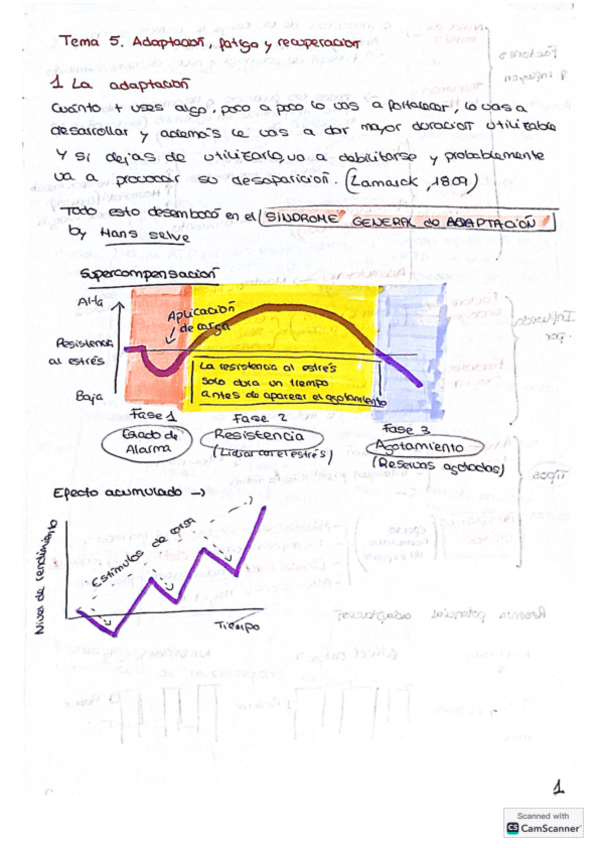 Tema 5. Adaptación, fatiga y recuperación
1 La adaptación
Cuánto + uses algo, poco a poco lo vas a fortalecer, lo vas a
desarrollar y además le vas a dar mayor duración utilizable
y si dejas de utilizarlo, va a debilitarse y probablemente
va a provocar su desaparición. (Lamarck, 1809)
Todo esto desembocó en el SÍNDROME GENERAL de ADAPTACIÓN
by Hans Selve
Supercompensación
Alta
Aplicación
de carga
Resistencia
al estrés
La resistencia al estrés
solo dura un tiempo
antes de aparear el agotamiento
Baja
Fase 1
Fase 2
Fase 3
Estado de
Alarma
Resistencia
(Lidiar con el estrés)
Agotamiento
(Reservas agotadas)
Efecto acumulado →
Nivel de rendimiento
Estímulos de carga
Tiempo
1
Scanned with
CS CamScanner